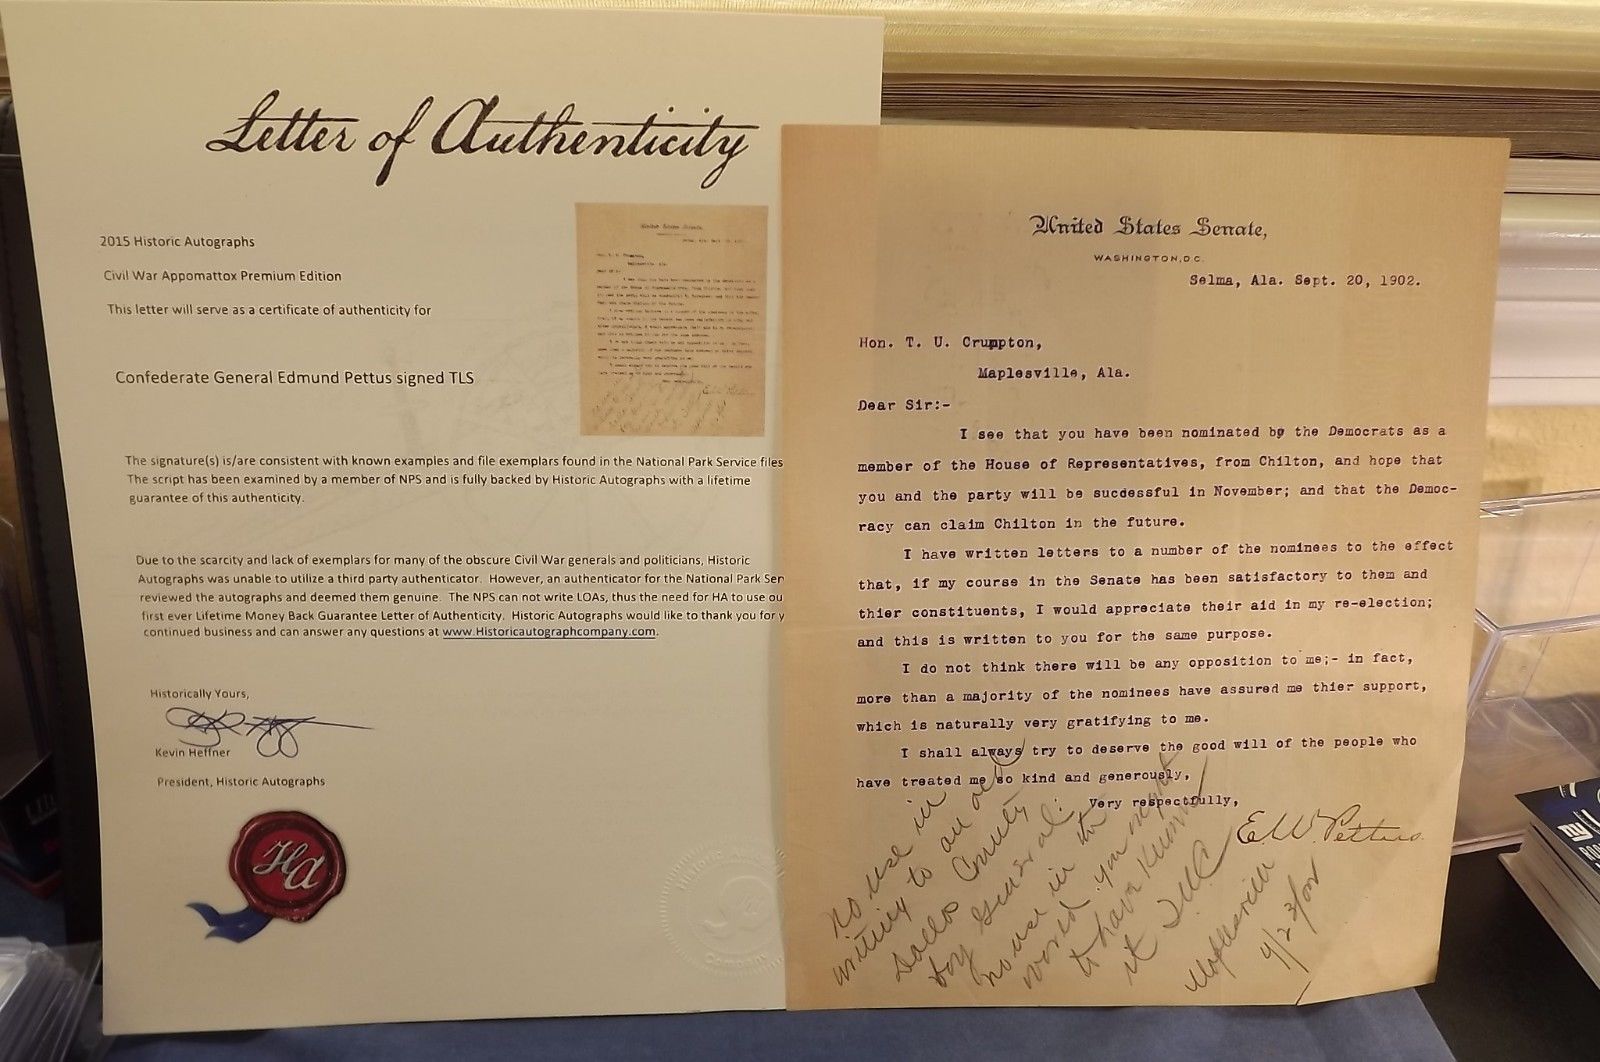 Letter of Authenticity
2015 Historic Autographs
Civil War Appomattox Premium Edition
This letter will serve as a certificate of authenticity for
Confederate General Edmund Pettus signed TLS
The signature(s) is/are consistent with known examples and file exemplars found in the National Park Service files
The script has been examined by a member of NPS and is fully backed by Historic Autographs with a lifetime
guarantee of this authenticity.
Due to the scarcity and lack of exemplars for many of the obscure Civil War generals and politicians, Historic
Autographs was unable to utilize a third party authenticator. However, an authenticator for the National Park Ser
reviewed the autographs and deemed them genuine. The NPS can not write LOAs, thus the need for HA to use ou
first ever Lifetime Money Back Guarantee Letter of Authenticity. Historic Autographs would like to thank you for y
continued business and can answer any questions at www.Historicautographcompany.com.
Historically Yours,
Kevin Heffner
President, Historic Autographs
HA
Company
United States Senate,
WASHINGTON, D.C.
Selma, Ala. Sept. 20, 1902.
Hon. T. U. Crumpton,
Maplesville, Ala.
Dear Sir:-
I see that you have been nominated by the Democrats as a
member of the House of Representatives, from Chilton, and hope that
you and the party will be successful in November; and that the Democ-
racy can claim Chilton in the future.
I have written letters to a number of the nominees to the effect
that, if my course in the Senate has been satisfactory to them and
thier constituents, I would appreciate their aid in my re-election;
and this is written to you for the same purpose.
I do not think there will be any opposition to me;- in fact,
more than a majority of the nominees have assured me thier support,
which is naturally very gratifying to me.
I shall always try to deserve the good will of the people who
have treated me so kind and generously,
Very respectfully,
E.W. Pettus
no use in
writing to an old
Dallas County
boy General:
no use in the
world. you might
to have known
it
Maplesville
9/23/02